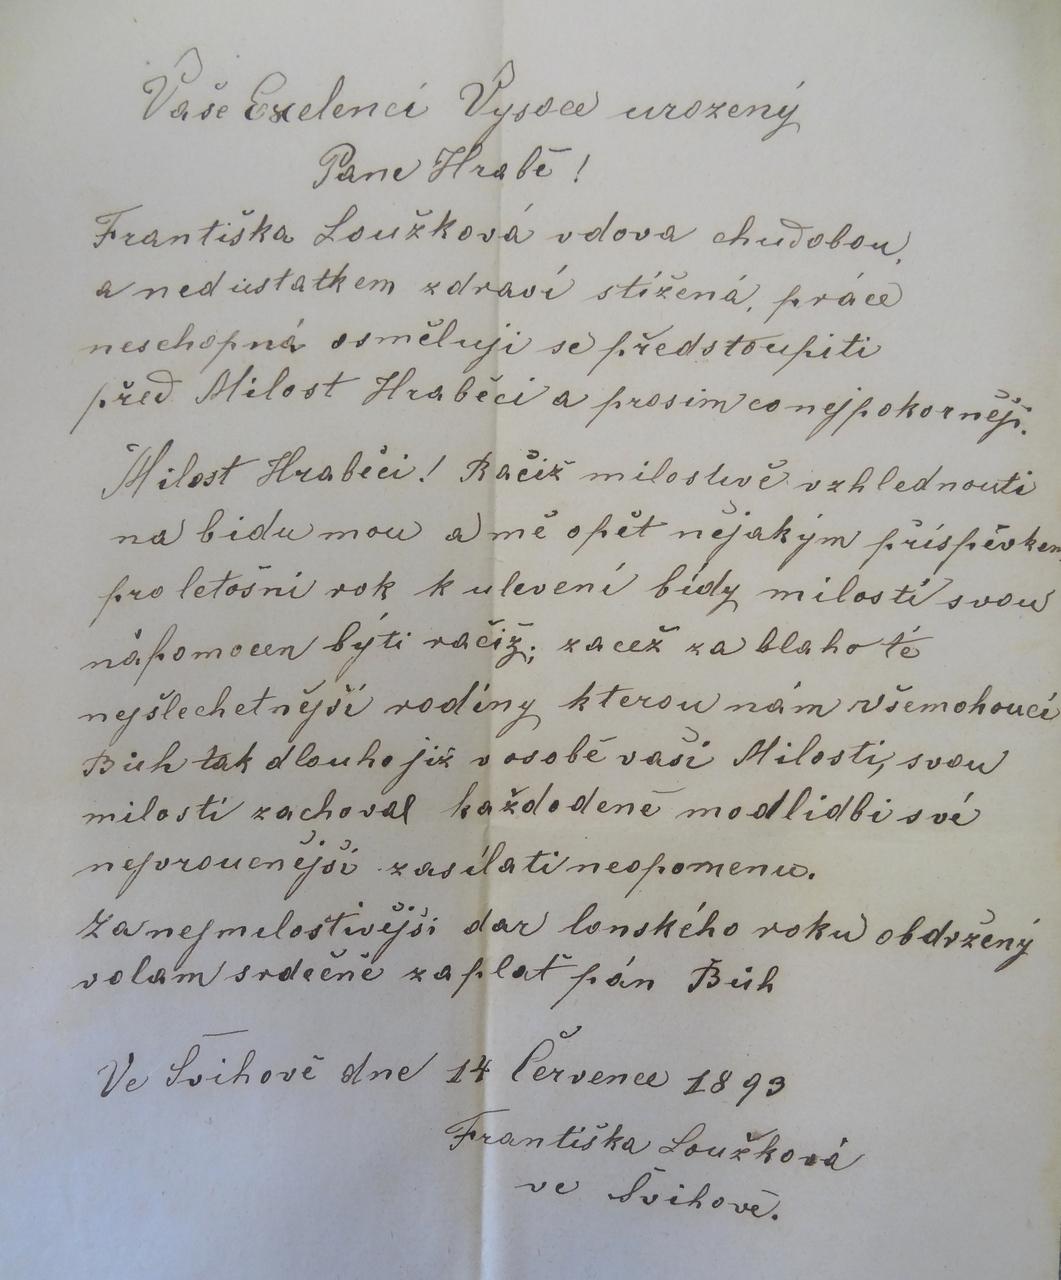 Vaše Exelencí Vysoce urozený
Pane Hrabě!
Františka Loužková vdova chuďobou,
a nedustatkem zdraví stížená, práce
neschopná osměluji se předstoupiti
přeď Milost Hraběcí a prosim co nejpokorněji.
Milost Hraběci! Račiž milostivě vzhlednouti
na bidu mou a mě opět nějakým příspěvkem
pro letošni rok k ulevení bídy milostí svou
nápomocen býti račiž; zacež za blaho té
nejšlechetnější rodíny kterou nám všemohoucí
Bůh tak dlouho již v osobě vaší Milosti, svou
milostí zachoval každodeně modlidbi své
nejvroucnější zasílati neopomenu.
Za nejmilostivější dar lonského roku obdržený
volam srdečně zaplať pán Bůh
Ve Švihově dne 14 Července 1893
Františka Loužková
ve Švihově.